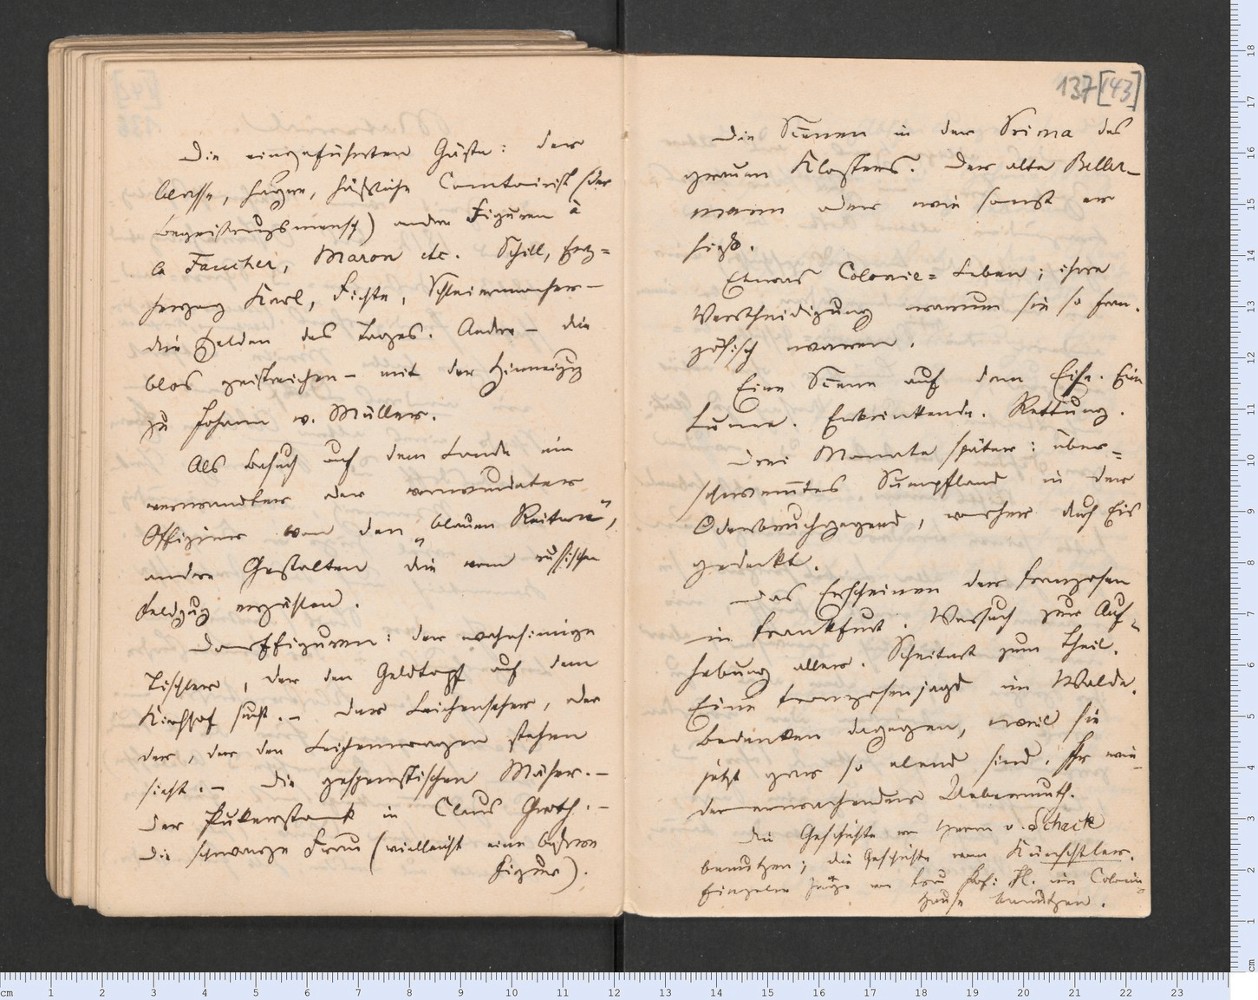 Die eingeführten Gäste: der
blasse, hagre, häßliche Comtoirist (der
Begeisterungsmensch) andre Figuren à
la Faucher, Maron etc. Schill, Erz=
herzog Karl, Fichte, Schleiermacher –
die Helden des Tages. Andre – die
blos geistreichen – mit der Hinneigung
zu Johann v. Müller.
Als Besuch auf dem Lande ein
verwandter oder verwundeter
Offizier von den „blauen Reitern“,
andre Gestalten die vom russischen
Feldzug erzählen.
Dorffiguren: der wahnsinnige
Tischler, der den Geldtopf auf dem
Kirchhof sucht. – Der Leichenseher, oder
der, der den Leichenwagen stehen
sieht. – Die gespenstischen Mäher. –
Der Pukerstock in Claus Groth. –
Die schwarze Frau (vielleicht eine bessre
Figur).
137[43]
Die Scenen in der Prima des
grauen Klosters. Der alte Beller-
mann oder wie sonst er
hieß.
Etwas Colonie=Leben; ihre
Vertheidigung warum sie so fran-
zösisch waren.
Eine Scene auf dem Eise. Eine
Lume. Ertrinkende. Rettung.
Drei Monate später: über=
schwemmtes Sumpfland in der
Oderbruchgegend, vorher durch Eis
gedeckt.
Das Erscheinen der Franzosen
in Frankfurt. Versuch zur Auf-
hebung aller. Scheitert zum Theil.
Eine Franzosenjagd im Walde.
Bedenken dagegen, weil sie
jetzt ganz so elend sind. Ihr wie-
der erwachender Uebermuth.
Die Geschichte von Herrn v. Schack
benutzen; die Geschichte vom Kürschtler.
Einzelne Züge von Frau Prof: H. im Colonie
Hause benutzen.